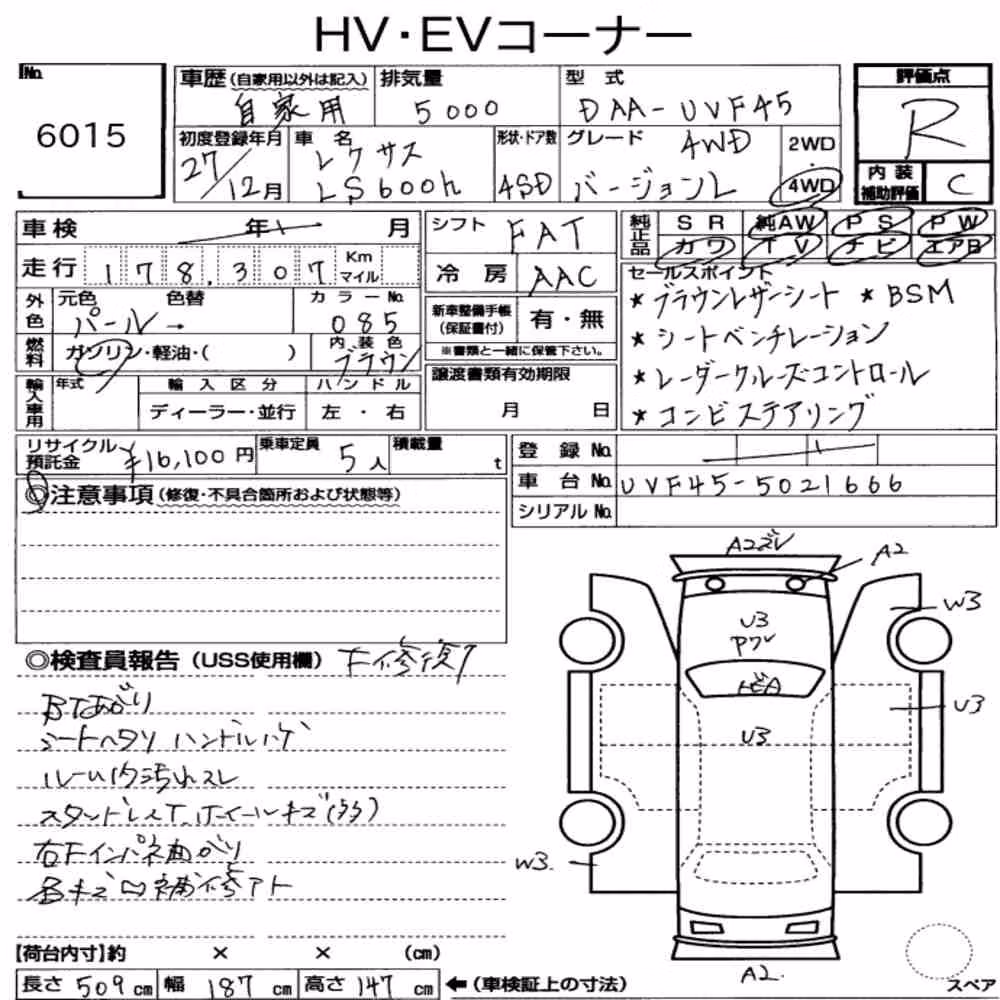 HV・EVコーナー
No.
6015
車歴(自家用以外は記入)
自家用
排気量
5000
型式
DAA-UVF45
評価点
R
初度登録年月
27/12月
車名
レクサス
LS600h
形状・ドア数
4SD
グレード
AWD
バージョンL
2WD
・
4WD
内装
補助評価
C
車検
年
月
シフト
FAT
純正品
SR
純AW
PS
PW
カワ
TV
ナビ
エアB
走行
178,307
Km
マイル
冷房
AAC
セールスポイント
★ブラウンレザーシート ★BSM
★シートベンチレーション
★レーダークルーズコントロール
★コンビステアリング
外色
元色
色替
パール→
カラーNo.
085
新車整備手帳
(保証書付)
有・無
※書類と一緒に保管下さい。
燃料
ガソリン・軽油・( )
内装色
ブラウン
譲渡書類有効期限
月 日
輸入車用
年式
輸入区分
ディーラー・並行
ハンドル
左・右
リサイクル
預託金
¥16,100円
乗車定員
5人
積載量
t
登録No.
車台No.
UVF45-5021666
シリアルNo.
◎注意事項(修復・不具合箇所および状態等)
◎検査員報告(USS使用欄)
F修復歴
BTあがり
シートヘタリ ハンドルハゲ
ルーム内汚れスレ
スタッドレスT ホイールキズ(多)
右Fインパネ曲がり
各キズ凹補修アト
A2ズレ
A2
U3
Pワレ
トビA
U3
W3
U3
W3
A2
スペア
【荷台内寸】約 × × (cm)
長さ 509 cm
幅 187 cm
高さ 147 cm
←(車検証上の寸法)